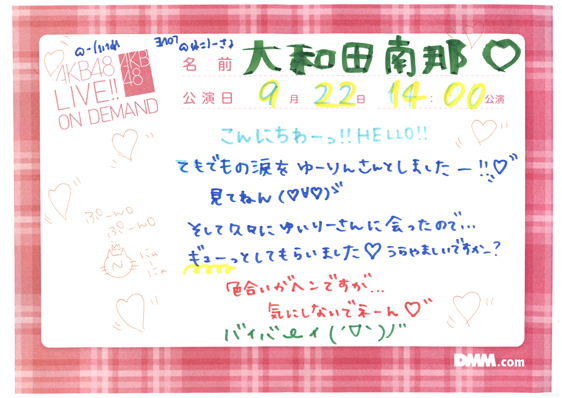 AKB48
LIVE!!
ON DEMAND
AKB
48
名前 大和田南那♡
公演日 9月22日 14:00公演
こんにちわーっ!!HELLO!!
てもでもの涙をゆーりんさんとしましたー!!♡
見てねん(♡∀♡)
そして久々にゆいりーさんに会ったので...
ギューっとしてもらいました♡うらやましいですかー?
色合いがヘンですが...
気にしないでネーん♡
バイバイ(´∇`)ノ
DMM.com